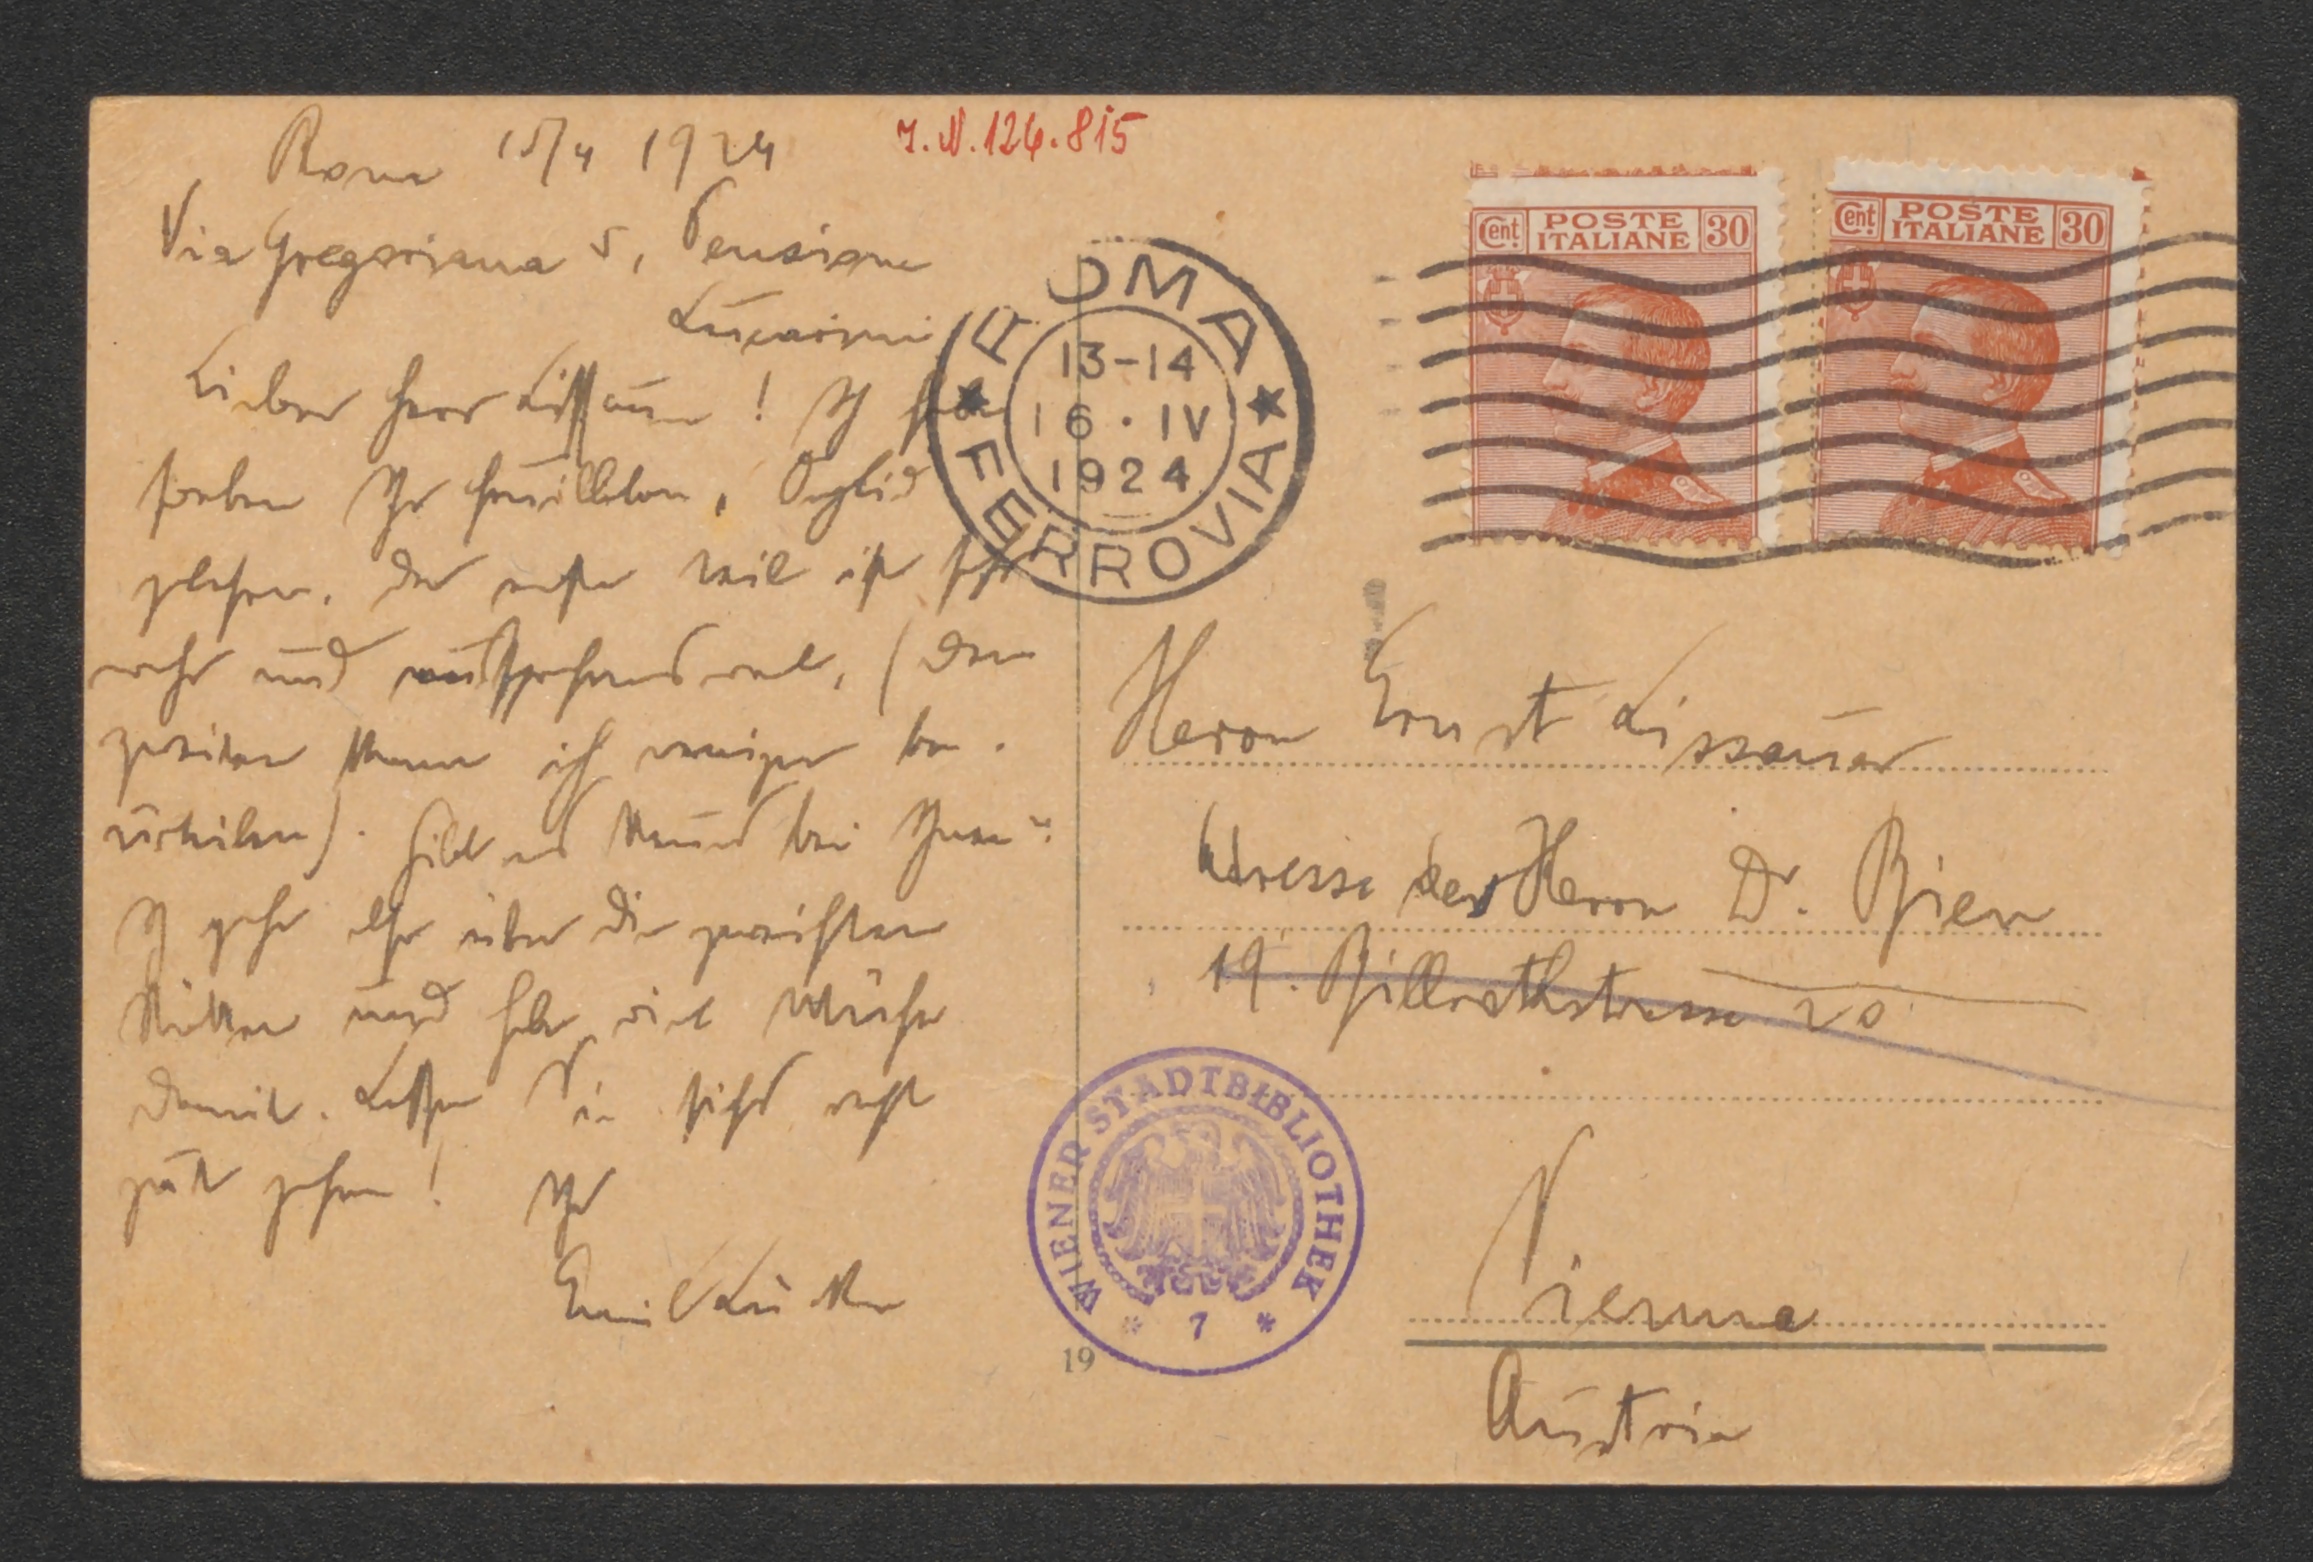 Rom 15/4 1924
J. N. 124.815
Via Gregoriana 5, Pensione
Lucarini
Lieber Herr Lissauer! Ich habe
soeben Ihr Feuilleton,
gelesen. Der erste Teil ist sehr
wahr und (den
zweiten kann ich weniger be-
urteilen). bei Ihnen
Ich gehe über die
und habe viel Mühe
damit. Lassen Sie sichs recht
gut gehen! Ihr
Emil Lucka
ROMA
FERROVIA
13-14
16 · IV
1924
Cent. POSTE ITALIANE 30
Cent. POSTE ITALIANE 30
Herrn Ernst Lissauer
Adresse des Herrn Dr. Bien
19. Billrothstrasse 20
Vienna
Austria
WIENER STADTBIBLIOTHEK
* 7 *
19